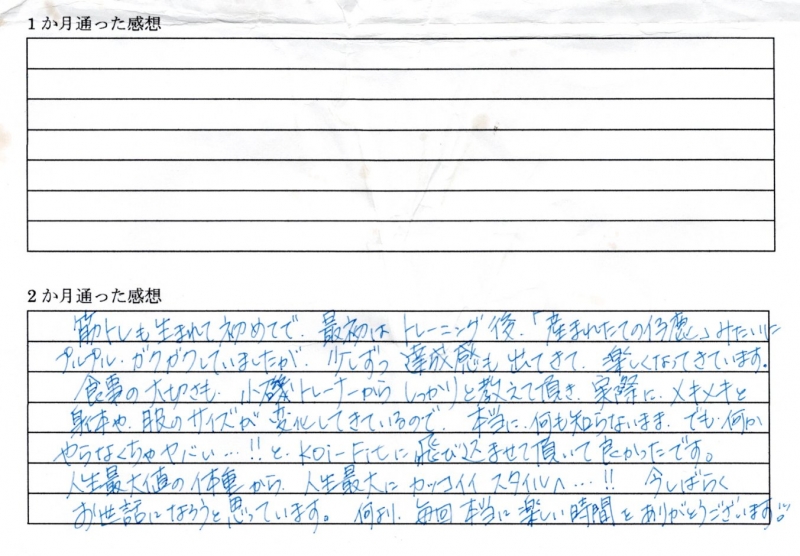 1か月通った感想
2か月通った感想
筋トレも生まれて初めてで、最初はトレーニング後、「産まれたての仔鹿」みたいに
プルプル・ガクガクしていましたが、少しずつ達成感も出てきて、楽しくなってきています。
食事の大切さも、小磯トレーナーからしっかりと教えて頂き、実際に、メキメキと
身体や、服のサイズが変化してきているので、本当に、何も知らないまま、でも、何か
やらなくちゃヤバい…!!と、Koi-Fitに飛び込ませて頂いて良かったです。
人生最大値の体重から、人生最大にカッコイイスタイルへ…!! 今しばらく
お世話になろうと思っています。 何より、毎回本当に楽しい時間をありがとうございます!!